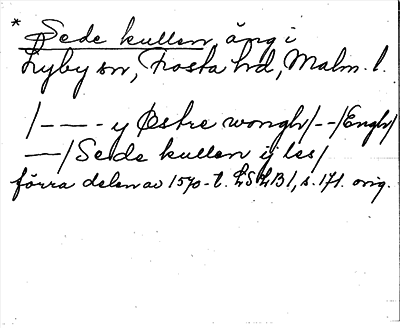 * Sede kullen äng i
Lyby sn, Frosta hd, Malm. l.
/– – – y Østre wongh/– –/Engh/
—/Sede kullen ij les/
förra delen av 1570-t. LSLB1, s. 171. orig.